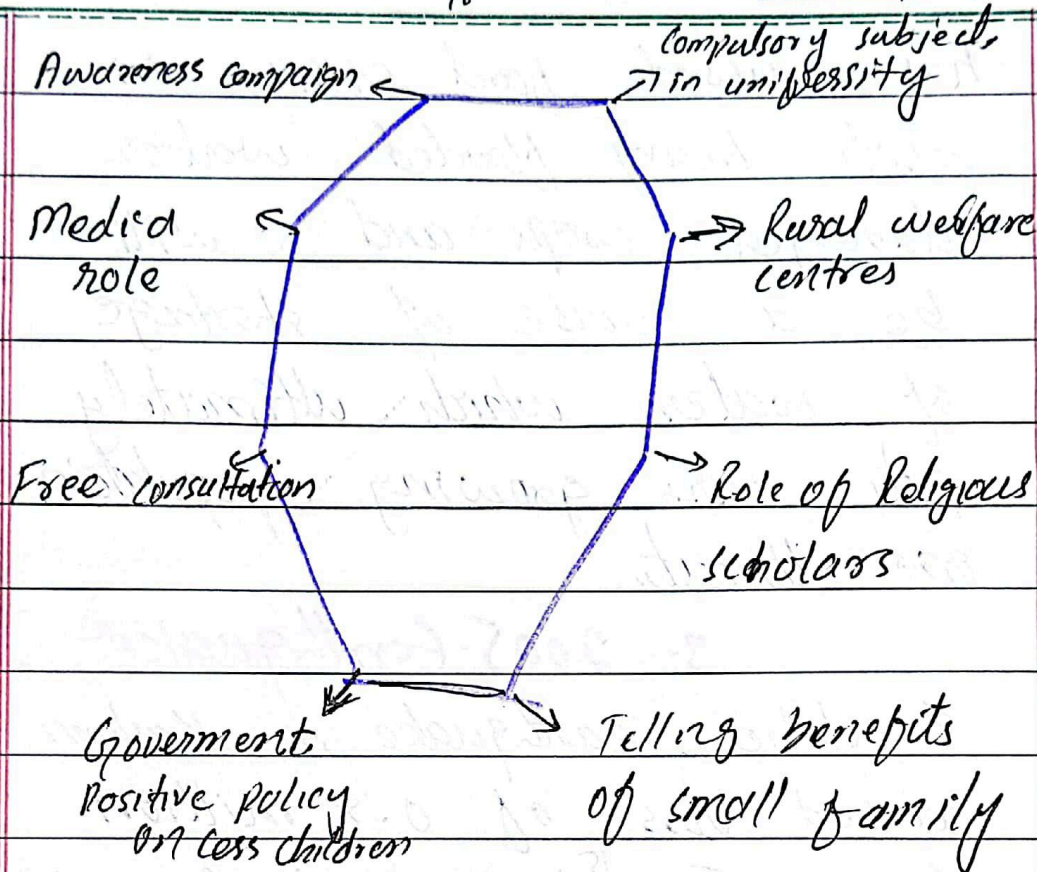 Awareness compaign
compulsory subject,
in university
Media
role
Rural welfare
centres
Free consultation
Role of Religious
scholars
Goverment
Positive policy
on less children
Telling benefits
of small family